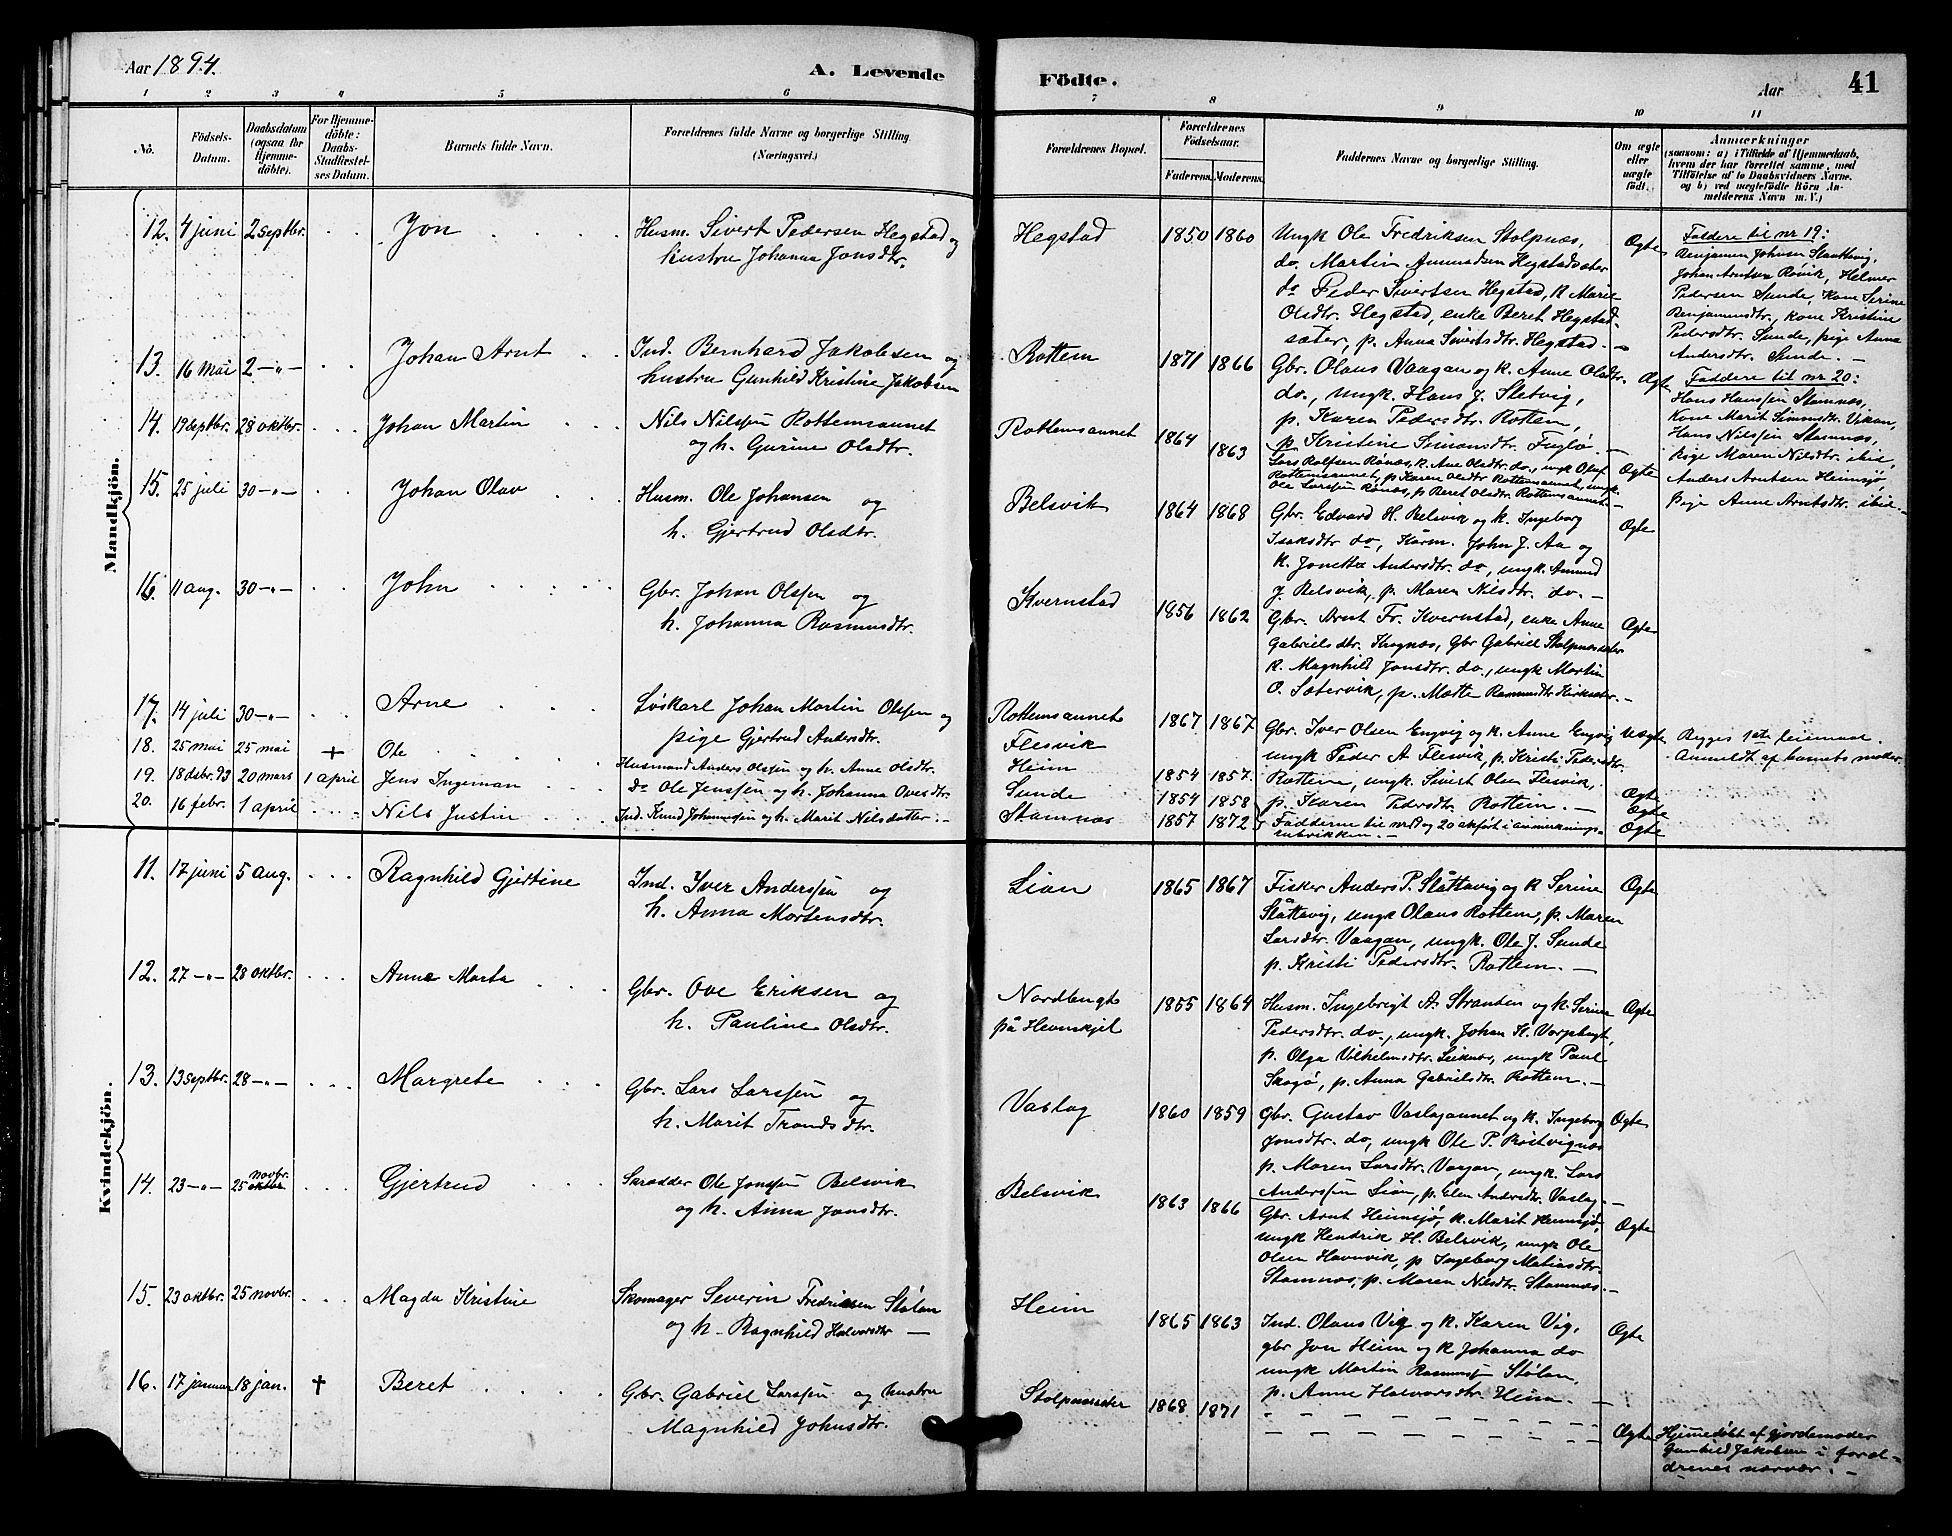 Aar 1894.
A. Levende
Födte.
Aar
41
1 2 3 4 5 6 7 8 9 10 11
No.
Födsels-Datum.
Daabsdatum (ogsaa for Hjemmedöbte).
For Hjemmedöbte: Daabs-Stadfæstelses Datum.
Barnets fulde Navn.
Forældrenes fulde Navne og borgerlige Stilling. (Næringsvei.)
Forældrenes Bopæl.
Forældrenes Födselsaar.
Faderens. Moderens.
Faddernes Navne og borgerlige Stilling.
Om ægte eller uægte födt.
Anmærkninger
(saasom: a) i Tilfælde af Hjemmedaab, hvem der har forrettet samme, med Tilföielse af to Daabsvidners Navne, og b) ved uægtefödte Börn Anmelderens Navn m. V.)
Mandkjön.
12. 4 juni 2 septbr. Jon Husm. Sivert Pedersen Hegstad og
hustru Johanna Jonsdtr. Hegstad 1850 1860 Ungk Ole Fredriksen Stolpnæs,
do. Martin Amundsen Hegstadsæter
do Peder Sivertsen Hegstad, k Marie
Olsdtr. Hegstad, enke Beret Hegstad-
sæter, p. Anna Sivertsdtr. Hegstad. —
Ægte
Faddere til nr 19:
Benjamin Johnsen Slaattavig,
Johan Arntsen Røvik, Helmer
Pedersen Sunde, Kone Serine
Benjaminsdtr., kone Kristine
Pedersdtr. Sunde, pige Anna
Andersdtr. Sunde. —
13. 16 mai 2 —"— Johan Arnt Ind. Bernhard Jakobsen og
hustru Gunhild Kristine Jakobsen Rottem 1871 1866 Gbr. Olaus Vaagan og k. Anne Olsdtr.
do., ungk. Hans J. Sletvig,
p. Karen Pedersdtr. Rottem,
p. Kristine Simonsdtr. Fuglø. —
Ægte
Faddere til nr 20:
Hans Hanssen Stamnæs,
Kone Marit Simonsdtr. Vikan,
Hans Nilssen Stamnæs,
Pige Maren Nilsdtr. ibid,
Anders Arntsen Heimsjø,
Pige Anne Arntsdtr. ibid. —
14. 19 septbr. 28 oktbr. Johan Martin Nils Nilssen Rottemsaunet
og h. Gurine Olsdtr. Rottemsaunet 1864 1863 Lars Rolfsen Rønæs, k. Ane Olsdtr. do., ungk Oluf
Rottemsaunet, p Karen Olsdtr Rottemsaunet, ungk.
Ole Larssen Rønæs, p Beret Olsdtr. Rottemsaunet. —
Ægte
15. 25 juli 30 —"— Johan Olav Husm. Ole Johansen og
h. Gjertrud Olsdtr. Belsvik 1864 1868 Gbr. Edvard H. Belsvik og k. Ingeborg
Isaksdtr do, Husm. John J. Aa og
k. Jonetta Andersdtr. do, ungk. Amund
J. Belsvik, p. Maren Nilsdtr. do. —
Ægte
16. 11 aug. 30 —"— John Gbr. Johan Olssen og
h. Johanna Rasmusdtr. Kvernstad 1856 1862 Gbr. Arnt Fr. Kvernstad, enke Anne
Gabrielsdtr. Krognæs, Gbr Gabriel Stolpnæssæter
k. Magnhild Jonsdtr. do., ungk Martin
O. Sætervik, p. Mætte Rasmusdtr —
Ægte
17. 14 juli 30 —"— Arne Løskarl Johan Martin Olssen og
pige Gjertrud Andersdtr. Rottemsaunet 1867 1867 Gbr. Iver Olsen Engvig og k. Anne Engvig
ungk Peder A Flesvik, p. Kristi Pedersdtr.
Rottem, ungk. Sivert Olsen Flesvik,
p. Karen Pedersdtr. Rottem. —
Uægte
Begges 1ste leiermaal.
Anmeldt af barnets moder.
18. 25 mai 25 mai + Ole Husmand Anders Olssen og h. Anne Olsdtr. Flesvik 1854 1857. Ægte
19. 18 dsbr. 93 20 mars 1 april Jens Ingeman do Ole Jenssen og h. Johanna Ovesdtr. Heim Sunde 1854 1858 Ægte
20. 16 febr. 1 april Nils Justin Ind. Knud Johannessen og h. Marit Nilsdatter. — Stamnæs 1857 1872 Fadderne til nr 19 og 20 anført i anmerknings-
rubrikken. —
Ægte
Kvindekjön.
11. 17 juni 5 aug. Ragnhild Gjertine Ind. Iver Anderssen og
h. Anna Mortensdtr. Lian 1865 1867 Fisker Anders P. Slåttavig og k Serine
Slåttavig, ungk Olaus Rottem, p. Maren
Larsdtr. Vaagan, ungk. Ole J. Sunde
p. Kristi Pedersdtr. Rottem. —
Ægte
12. 27 —"— 28 oktbr. Anne Marta Gbr. Ove Eriksen og
h. Pauline Olsdtr. Nordlengst
på Hevnskjel 1855 1864 Husm. Ingebrigt A. Stranden og k. Serine
Pedersdtr. do., ungk. Johan K. Vorpbugt,
p. Olga Vilhelmsdtr. Leiknæs, ungk Paul
Skogø, p. Anna Gabrielsdtr. Rottem. —
Ægte
13. 13 septbr. 28 —"— Margrete Gbr. Lars Larssen og
h. Marit Trondsdtr. Vaslag 1860 1859 Gbr. Gustav Vaslagaunet og k. Ingeborg
Jonsdtr. do, ungk Ole P. Røstvignæs
p. Maren Larsdtr. Vaagan, ungk. Lars
Anderssen Lian, p. Elen Andersdtr. Vaslag. —
Ægte
14. 23 —"— 25 novbr. Gjertrud Skrædder Ole Jonssen Belsvik
og h. Anna Jonsdtr. Belsvik 1863 1866 Gbr. Arnt Heimsjø, k. Marit Heimsjø,
ungk Hendrik H. Belsvik, ungk Ole
Olsen Havnvik, p Ingeborg Matiasdtr.
Stamnæs, p. Maren Nilsdtr. Stamnæs. —
Ægte
15. 23 oktbr. 25 novbr. Magda Kristine Skomager Severin Fredriksen Stølan
og h. Ragnhild Halvorsdtr — Heim 1865 1863 Ind. Olaus Vig og k. Karen Vig,
gbr Jon Heim og k Johanna do
ungk Martin Rasmussen Stølan,
p. Anne Halvorsdtr. Heim. —
Ægte
16. 17 januar 18 jan. † Beret Gbr. Gabriel Larssen og hustru
Magnhild Johnsdtr. Stolpnæsæter 1868 1871 Ægte
Hjemmedøbt af gjordemoder
Gunhild Jakobsen i foræl-
drenes nærvær. —